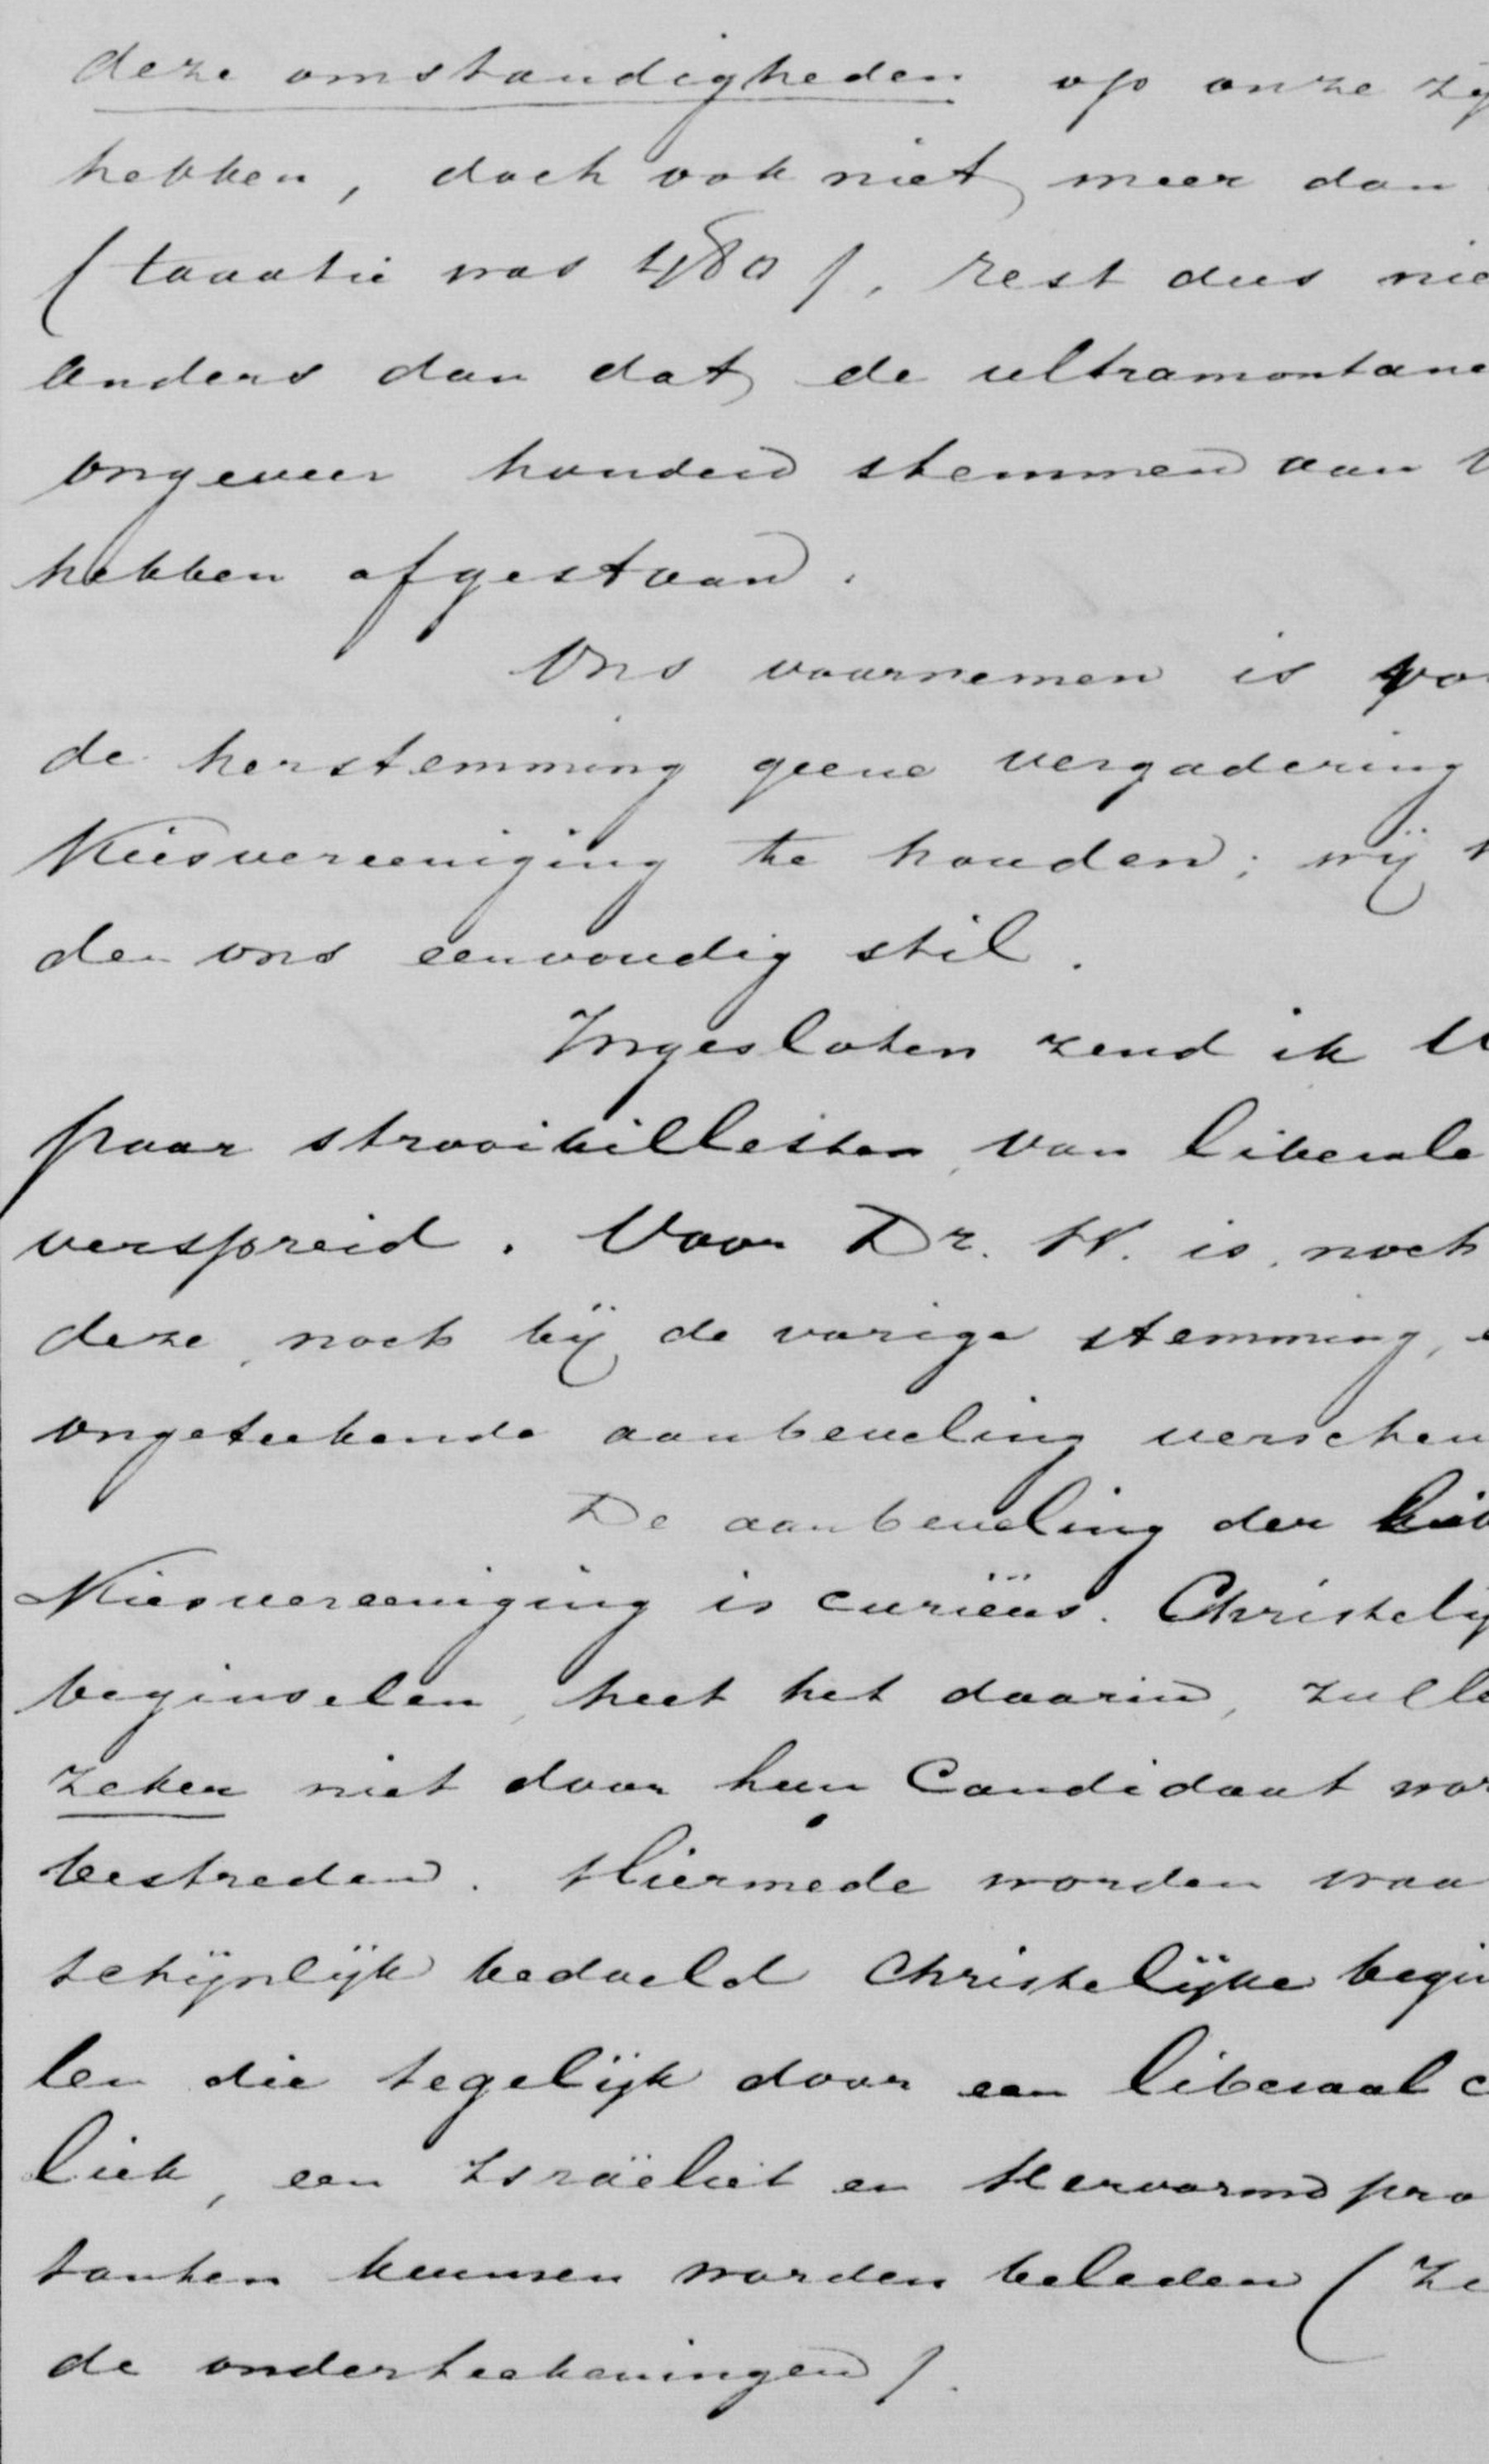 deze omstandigheden op onze zij
hebben, doch ook niet meer dan
(taxatie was 480), rest dus nie
anders dan dat de ultramontane
ongeveer honderd stemmen aan
hebben afgestaan.
Ons voornemen is voo
de herstemming geene vergadering
Kiesvereeniging te houden; wij
den ons eenvoudig stil.
Ingesloten zend ik U
paar strooibilletten, van liberale
verspreid. Voor Dr. K. is, noch
deze, noch bij de vorige stemming,
ongeteekende aanbeveling verschen
De aanbeveling der
Kiesvereeniging is curiëus. Christelij
beginselen, heet het daarin, zulle
zeker niet door hun Candidaat wor
bestreden. Hiermede worden waa
schijnlijk bedoeld Christelijke begin
len die tegelijk door een liberaal c
liek, een Israëliet en Hervormd pro
tanten kunnen worden beleden (Ze
de onderteekeningen).